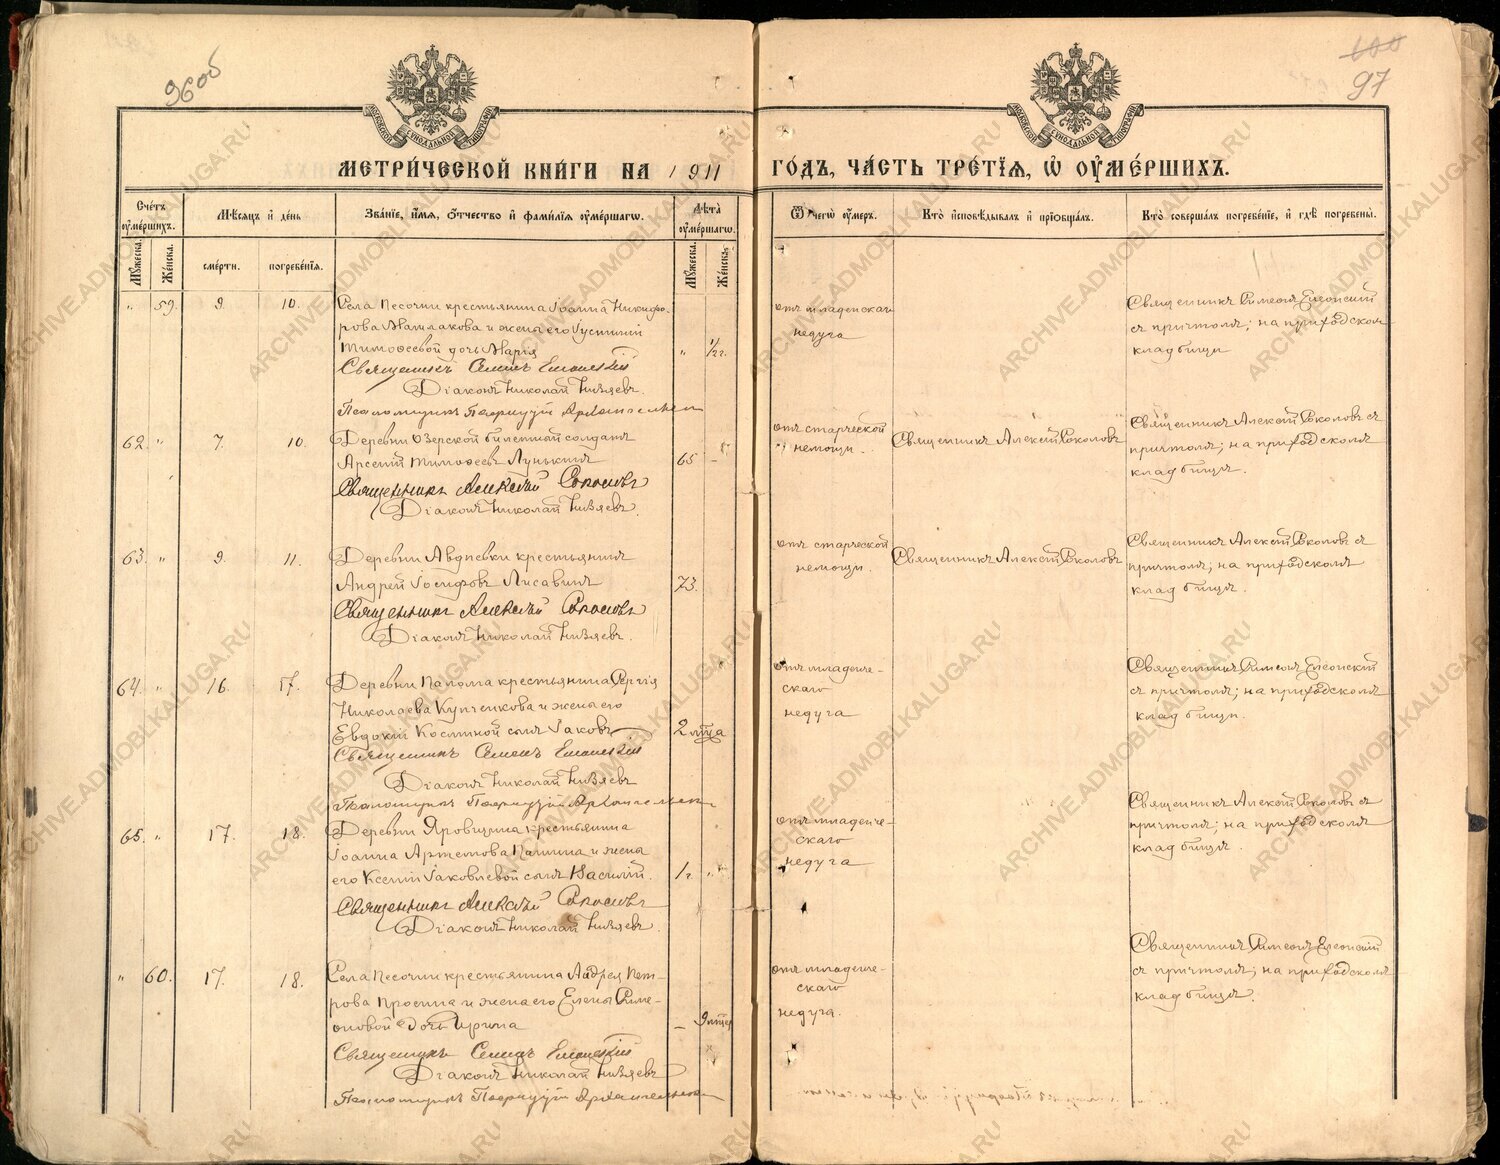 96об
97
МЕТРИ́ЧЕСКОЙ КНИ́ГИ НА 1911
ГО́ДЪ, ЧА́СТЬ ТРЕ́ТІѦ, Ѡ҆ ОУ҆МЕ́РШИХЪ.
Сче́тъ оу҆ме́ршихъ.
Мѣ́сѧцъ и҆ де́нь
Зва́нїе, и҆́мѧ, ѻ҆́тчество и҆ фамѝлїѧ оу҆ме́ршагѡ.
Лѣ́та оу҆ме́ршагѡ.
Ѿ чегѡ̀ оу҆́меръ.
Кто̀ и҆сповѣ́дывалъ и҆ прїѡбща́лъ.
Кто̀ соверша́лъ погребе́нїе, и҆ гдѣ̀ погребены̀.
Мꙋ́жеска.
Же́нска.
сме́рти.
погребе́нїѧ.
Мꙋ́жеска.
Же́нска.
" 59. 9. 10. Села Песочни крестьянина Іоанна Никифо-
рова и жены его Іустиніи
Тимофеевой дочь Марія " 1/2 г.
Священникъ Симеонъ
Діаконъ Николай Князевъ.
Псаломщикъ Архангельскій
отъ младенческаго
недуга
Священникъ Симеонъ
съ причтомъ; на приходскомъ
кладбищи
62. " 7. 10. Деревни Озерской билетный солдатъ
Арсеній Тимофеевъ Лунькинъ 65 -
Священникъ Алексѣй Соколовъ
Діаконъ Николай Князевъ.
отъ старческой
немощи.
Священникъ Алексій Соколовъ
Священникъ Алексій Соколовъ съ
причтомъ; на приходскомъ
кладбищѣ.
63. " 9. 11. Деревни Авдѣевки крестьянинъ
Андрей Іосифовъ Лисавинъ 73.
Священникъ Алексѣй Соколовъ
Діаконъ Николай Князевъ.
отъ старческой
немощи.
Священникъ Алексій Соколовъ
Священникъ Алексій Соколовъ съ
причтомъ; на приходскомъ
кладбищѣ.
64. " 16. 17. Деревни крестьянина Сергія
Николаева Купченкова и жены его
Евдокіи Косминой сынъ Іаковъ 2 мѣсца
Священникъ Симеонъ
Діаконъ Николай Князевъ
Псаломщикъ Архангельскій
отъ младенче-
скаго
недуга
Священникъ Симеонъ
съ причтомъ; на приходскомъ
кладбищи.
65. " 17. 18. Деревни Яровщина крестьянина
Іоанна Артемова Панина и жены
его Ксеніи Іаковлевой сынъ Василій. 1 г. "
Священникъ Алексѣй Соколовъ
Діаконъ Николай Князевъ.
отъ младенче-
скаго
недуга
Священникъ Алексій Соколовъ съ
причтомъ; на приходскомъ
кладбищѣ.
" 60. 17. 18. Села Песочни крестьянина Андрея Пет-
рова Пронина и жены его Елены Симе-
оновой дочь Ирина - 9 мѣсц
Священникъ Симеонъ
Діаконъ Николай Князевъ
Псаломщикъ Архангельскій
отъ младенче-
скаго
недуга.
Священникъ Симеонъ
съ причтомъ; на приходскомъ
кладбищѣ.
ARCHIVE.ADMOBLKALUGA.RU